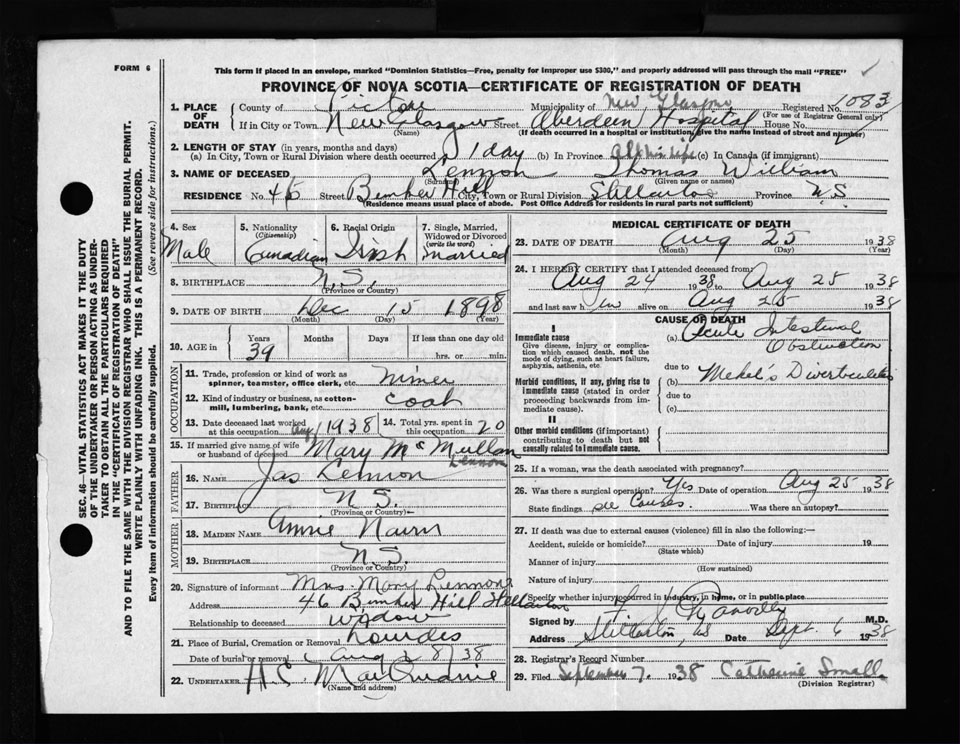 FORM 6
This form if placed in an envelope, marked "Dominion Statistics—Free, penalty for improper use $300," and properly addressed will pass through the mail "FREE"
PROVINCE OF NOVA SCOTIA—CERTIFICATE OF REGISTRATION OF DEATH
1. PLACE OF DEATH County of Pictou Municipality of New Glasgow Registered No. 1083
(For use of Registrar General only)
If in City or Town New Glasgow Street Aberdeen Hospital House No.
(Name) (If death occurred in a hospital or institution, give the name instead of street and number)
2. LENGTH OF STAY (in years, months and days)
(a) In City, Town or Rural Division where death occurred 1 day (b) In Province all his life (c) In Canada (if immigrant)
3. NAME OF DECEASED Lennon Thomas William
(Surname) (Given name or names)
RESIDENCE No. 46 Street Bunker Hill City, Town or Rural Division Stellarton Province N.S.
(Residence means usual place of abode. Post Office Address for residents in rural parts not sufficient)
4. Sex Male
5. Nationality (Citizenship) Canadian
6. Racial Origin Irish
7. Single, Married, Widowed or Divorced (write the word) married
8. BIRTHPLACE N.S.
(Province or Country)
9. DATE OF BIRTH Dec 15 1898
(Month) (Day) (Year)
10. AGE in Years Months Days If less than one day old
39 hrs. or min.
OCCUPATION
11. Trade, profession or kind of work as spinner, teamster, office clerk, etc. miner
12. Kind of industry or business, as cotton-mill, lumbering, bank, etc. coal
13. Date deceased last worked at this occupation Aug 1938 14. Total yrs. spent in this occupation 20
15. If married give name of wife or husband of deceased Mary McMullan Lennon
FATHER
16. NAME Jas Lennon
17. BIRTHPLACE N.S.
(Province or Country)
MOTHER
18. MAIDEN NAME Annie Nairn
19. BIRTHPLACE N.S.
(Province or Country)
20. Signature of informant Mrs. Mary Lennon
Address 46 Bunker Hill Stellarton
Relationship to deceased widow
21. Place of Burial, Cremation or Removal Lourdes
Date of burial or removal Aug 28/38
22. UNDERTAKER
(Name and address)
MEDICAL CERTIFICATE OF DEATH
23. DATE OF DEATH Aug 25 1938
(Month) (Day) (Year)
24. I HEREBY CERTIFY that I attended deceased from:
Aug 24 1938 to Aug 25 1938
and last saw him alive on Aug 25 1938
CAUSE OF DEATH
I
Immediate cause
Give disease, injury or complication which caused death, not the mode of dying, such as heart failure, asphyxia, asthenia, etc.
(a) Acute Intestinal Obstruction
due to
Morbid conditions, if any, giving rise to immediate cause (stated in order proceeding backwards from immediate cause).
(b) Mekel's Diverticulitis
due to
(c)
II
Other morbid conditions (if important) contributing to death but not causally related to immediate cause.
25. If a woman, was the death associated with pregnancy?
26. Was there a surgical operation? Yes Date of operation Aug 25 1938
State findings see Causes. Was there an autopsy?
27. If death was due to external causes (violence) fill in also the following:—
Accident, suicide or homicide? Date of injury 19
(State which)
Manner of injury
(How sustained)
Nature of injury
Specify whether injury occurred in industry, in home, or in public place
Signed by M.D.
Address Stellarton, NS Date Sept. 6 1938
28. Registrar's Record Number
29. Filed September 7. 1938 Catherine Small
(Division Registrar)
SEC. 46—VITAL STATISTICS ACT MAKES IT THE DUTY
OF THE UNDERTAKER OR PERSON ACTING AS UNDERTAKER TO OBTAIN ALL THE PARTICULARS REQUIRED
IN THE "CERTIFICATE OF REGISTRATION OF DEATH"
AND TO FILE THE SAME WITH THE DIVISION REGISTRAR WHO SHALL ISSUE THE BURIAL PERMIT.
WRITE PLAINLY WITH UNFADING INK. THIS IS A PERMANENT RECORD.
Every item of information should be carefully supplied. (See reverse side for instructions.)